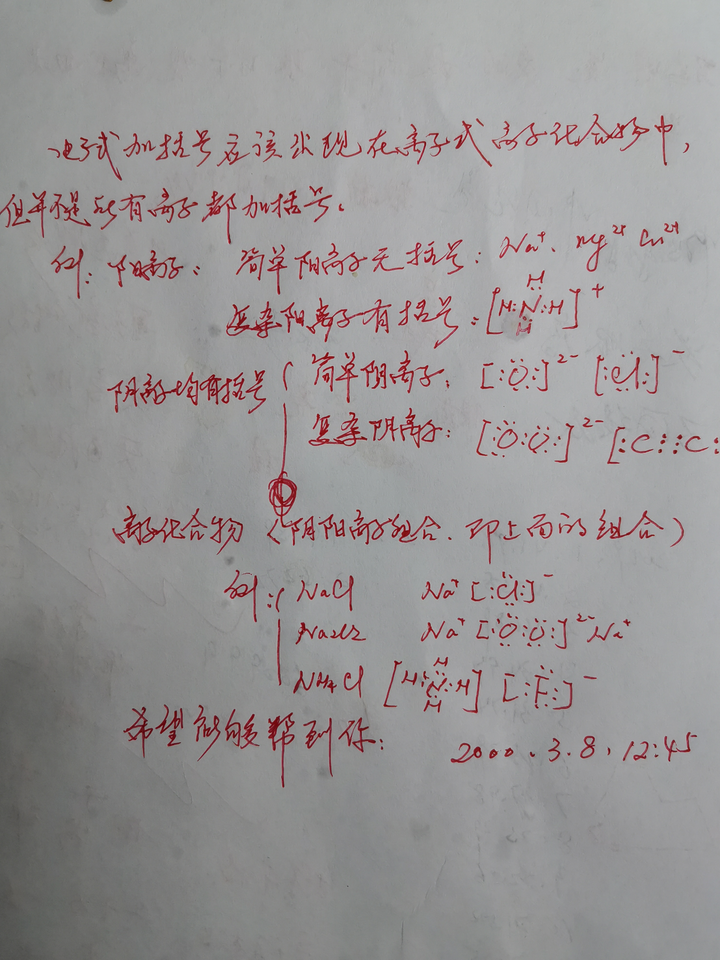 电子式加括号应该出现在离子式离子化合物中,
但并不是所有离子都加括号。
例:阳离子: 简单阳离子无括号: Na⁺. Mg²⁺ Cu²⁺
复杂阳离子有括号: [H:N:H]⁺
H
H
阴离子均有括号 简单阴离子: [:O:]²⁻ [:Cl:]⁻
复杂阴离子: [:O:O:]²⁻ [:C⋮⋮C:
离子化合物 (阴阳离子组合. 即上面的组合)
例: NaCl Na⁺ [:Cl:]⁻
Na⁺ [:O:O:]²⁻ Na⁺
NH4Cl [H:N:H] [:F:]⁻
H
H
希望能够帮到你: 2000.3.8.12:45